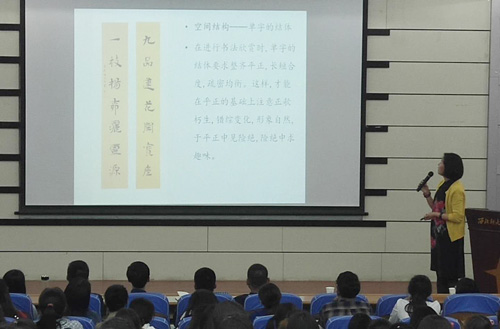 九品蓮花開寶座
一枝
• 空间结构——单字的结体
• 在进行书法欣赏时,单字的
结体要求整齐平正,长短合
度,疏密均衡。这样,才能
在平正的基础上注意正欹
朽生,错综变化,形象自然,
于平正中见险绝,险绝中求
趣味。